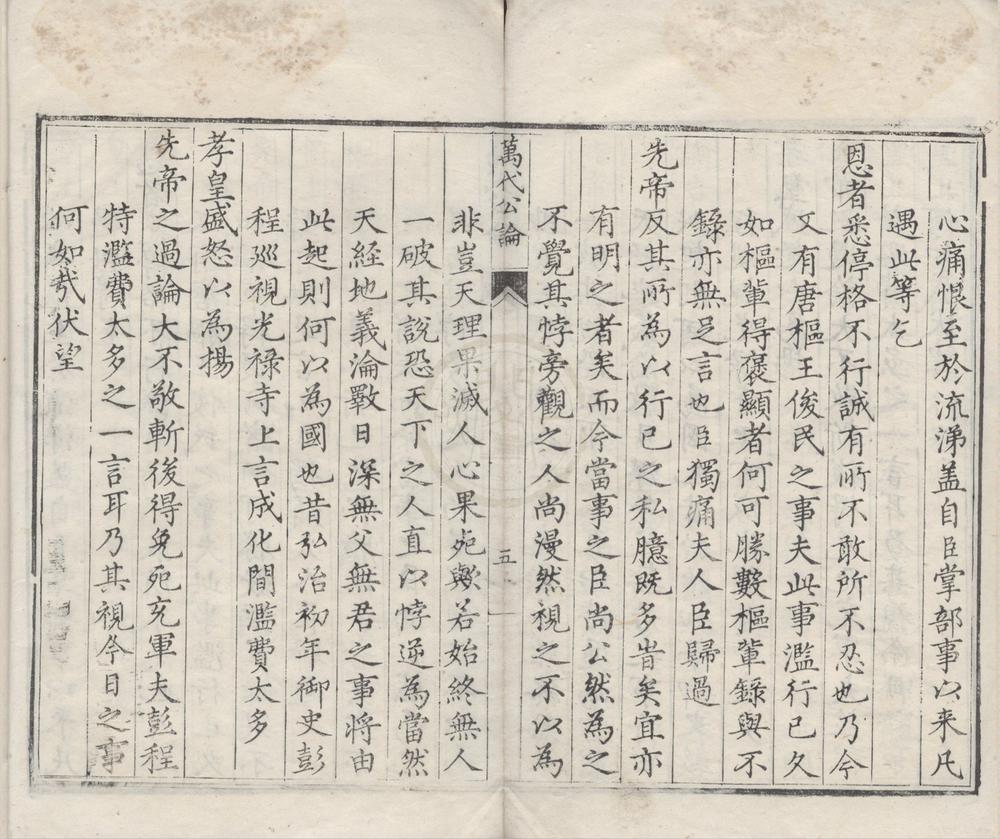 心痛恨至於流涕盖自臣掌部事以来凡
遇此等乞
恩者悉停格不行誠有所不敢所不忍也乃今
又有唐樞王俊民之事夫此事濫行已久
如樞軰得褒顯者何可勝數樞軰錄與不
錄亦無足言也臣獨痛夫人臣歸過
先帝反其所為以行已之私臆既多昔矣宜亦
有明之者矣而今當事之臣尚公然為之
不覺其悖旁觀之人尚漫然視之不以為
萬代公論
五
非豈天理果滅人心果死歟若始終無人
一破其說恐天下之人直以悖逆為當然
天経地義淪斁日深無父無君之事将由
此起則何以為國也昔弘治初年御史彭
程巡視光禄寺上言成化間濫費太多
孝皇盛怒以為揚
先帝之過論大不敬斬後得免死充軍夫彭程
特濫費太多之一言耳乃其視今日之事
何如㢤伏望